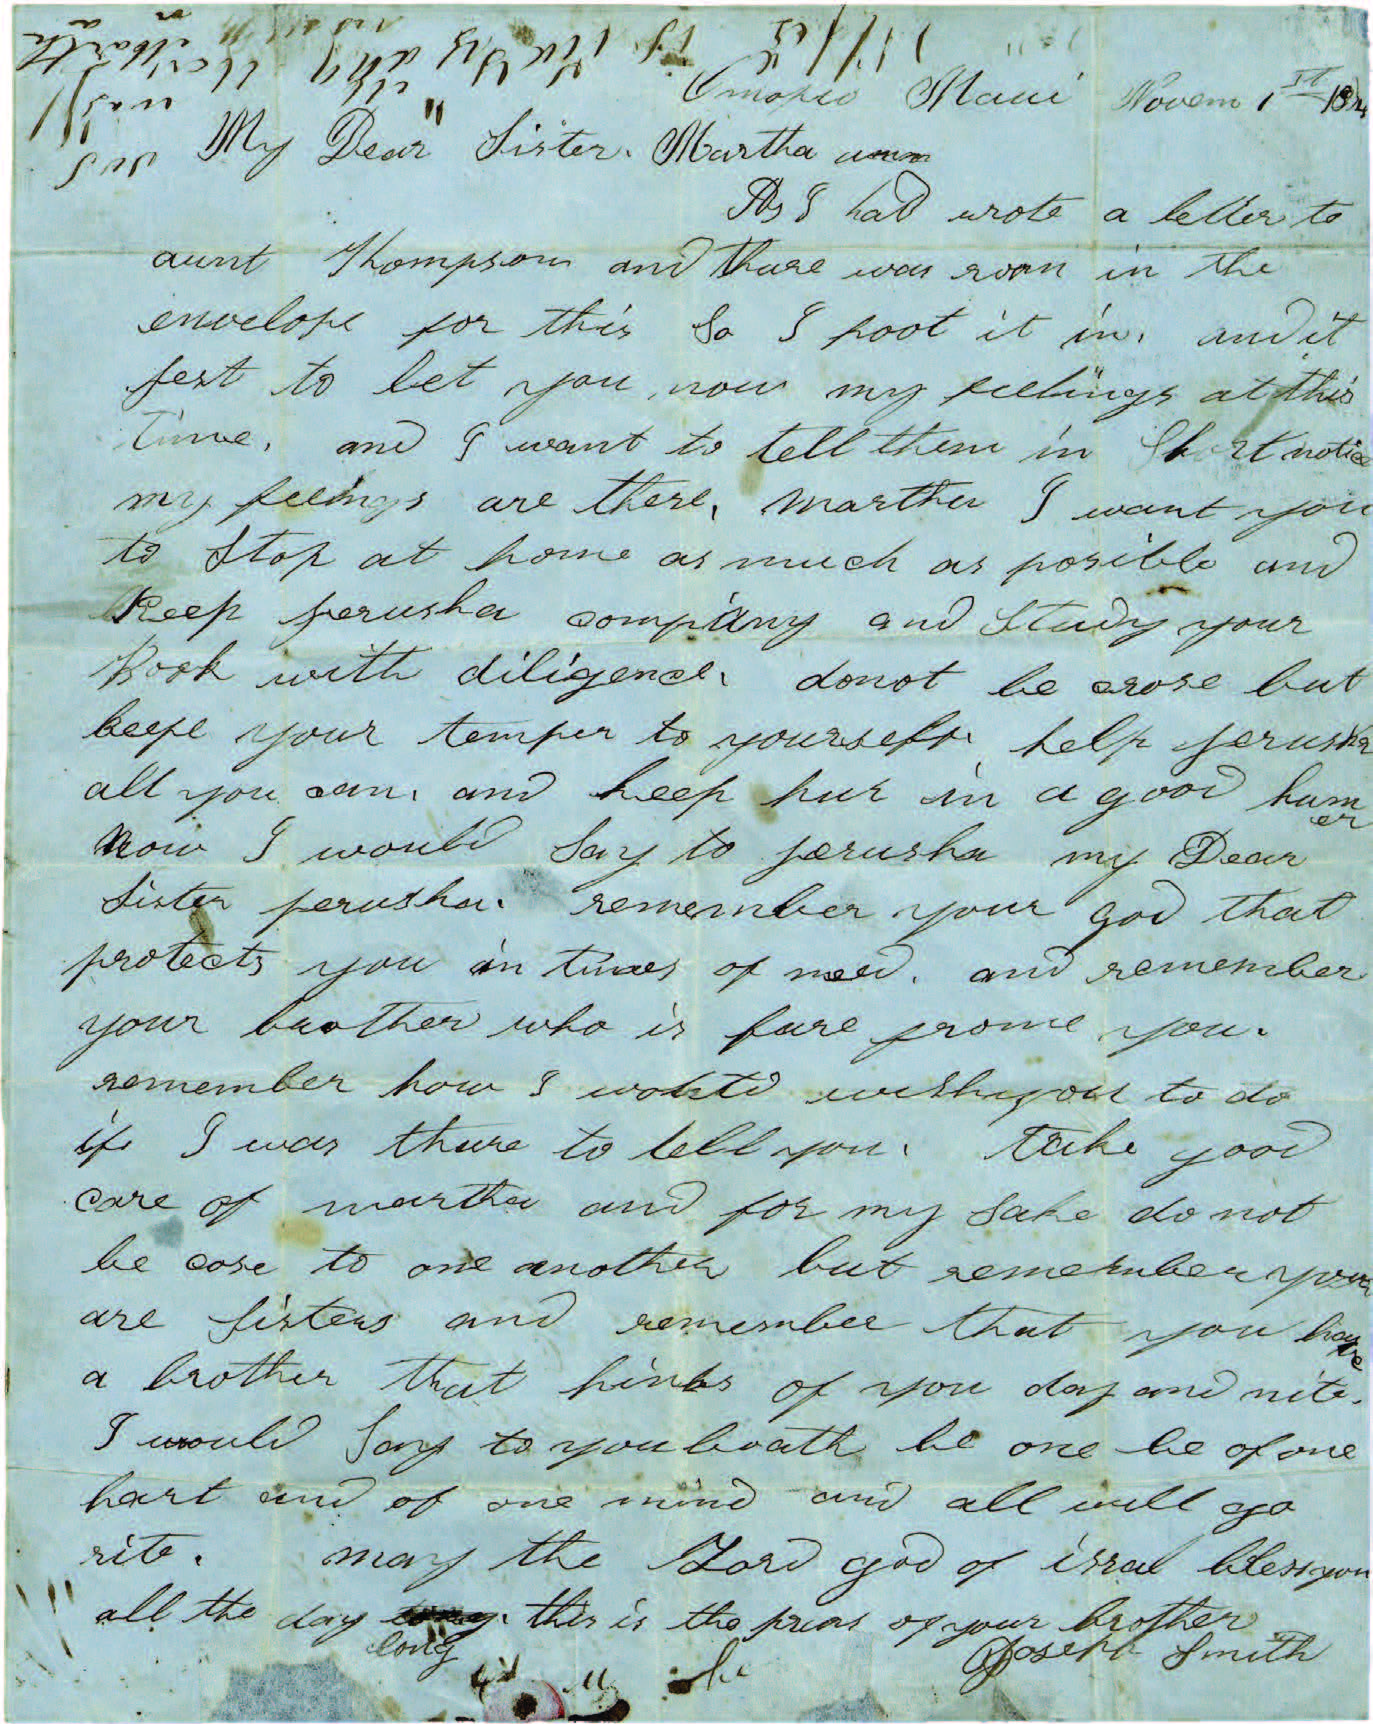 Omopio Maui Novem 1st
My Dear Sister. Martha ann
As I had wrote a letter to
aunt Thompson and thare was room in the
envelope for this So I poot it in. and it
jest to let you now my feelings at this
time. and I want to tell them in Short notice
my feelings are these, Martha I want you
to Stop at home as much as posible and
Keep jerusha company and Study your
Book with diligence. donot be crose but
keepe your temper to yourself. help jerusha
all you can. and keep hur in a good humer
now I would Say to jerusha my Dear
Sister jerusha. remember your god that
protects you in times of need. and remember
your brother who is fare frome you.
remember how I would wish you to do
if I was thare to tell you. take good
care of martha and for my Sake do not
be cose to one another but remember your
are Sisters and remember that you have
a brother that hinks of you day and nite.
I would Say to you boath be one be of one
hart and of one mind and all will go
rite. may the Lord god of isral bless you
all the day long this is the prear of your brother
Joseph Smith